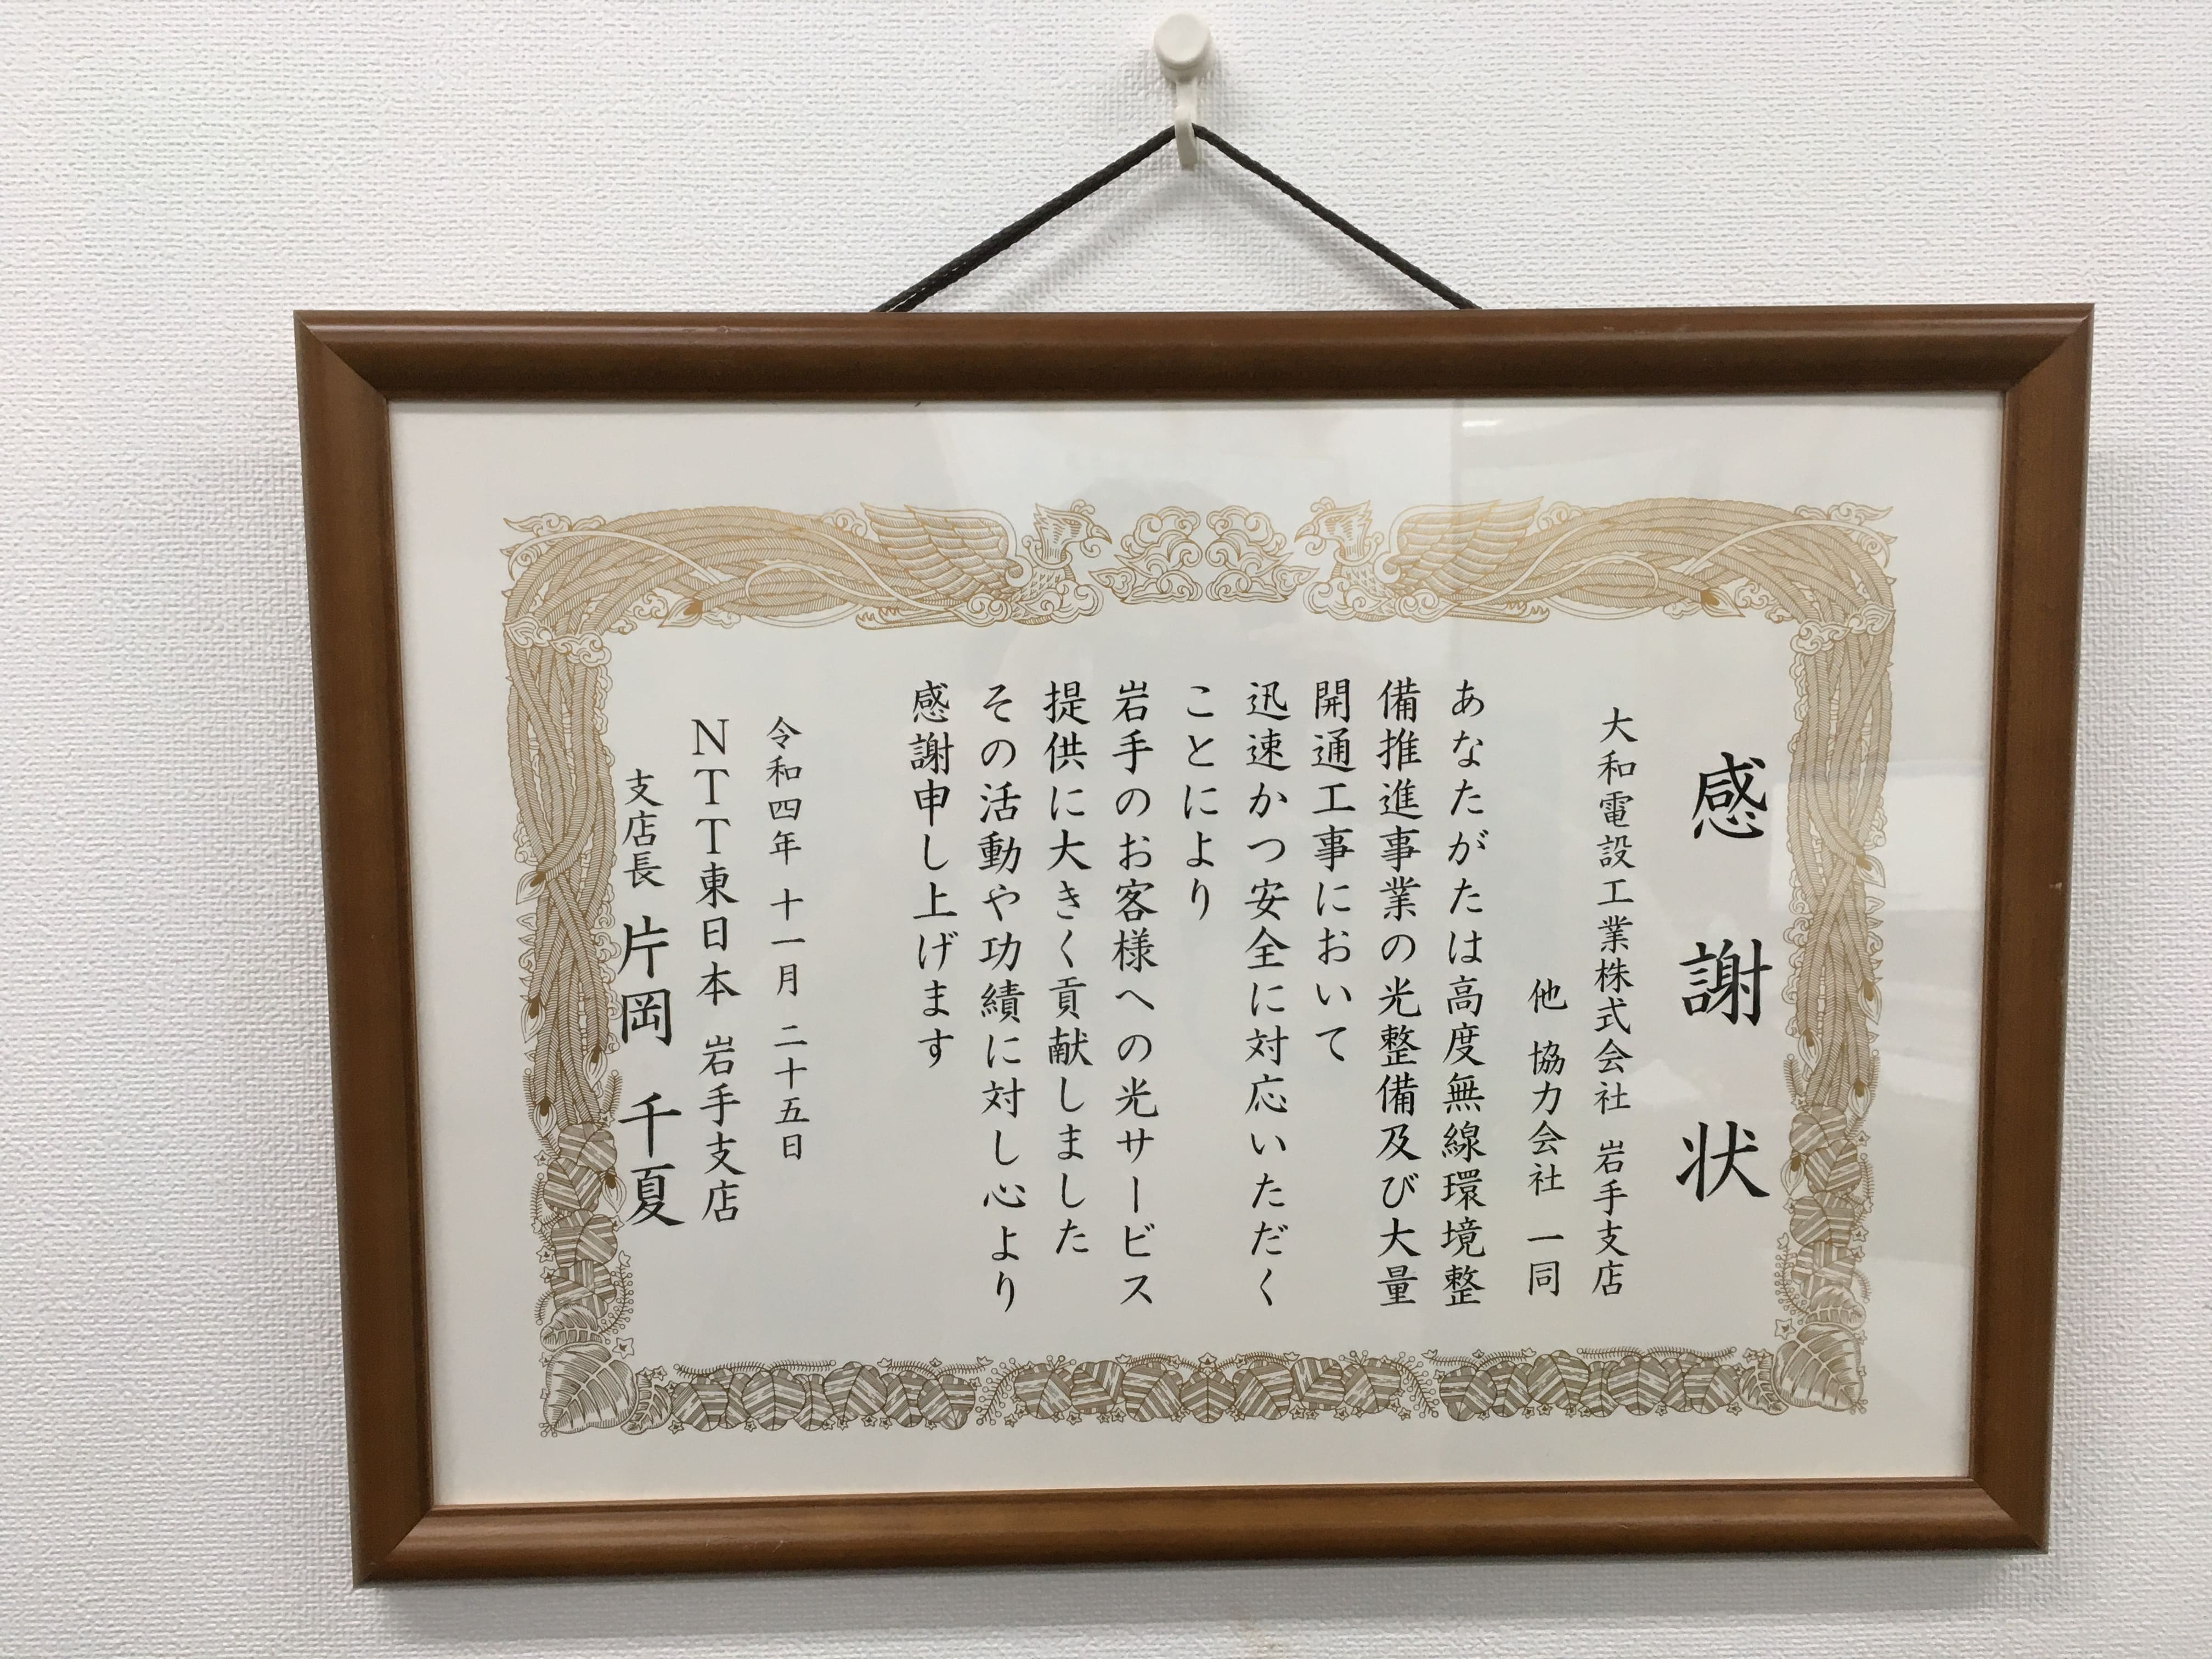 感謝状
大和電設工業株式会社 岩手支店
他 協力会社 一同
あなたがたは高度無線環境整
備推進事業の光整備及び大量
開通工事において
迅速かつ安全に対応いただく
ことにより
岩手のお客様への光サービス
提供に大きく貢献しました
その活動や功績に対し心より
感謝申し上げます
令和四年 十一月 二十五日
NTT東日本 岩手支店
支店長 片岡 千夏